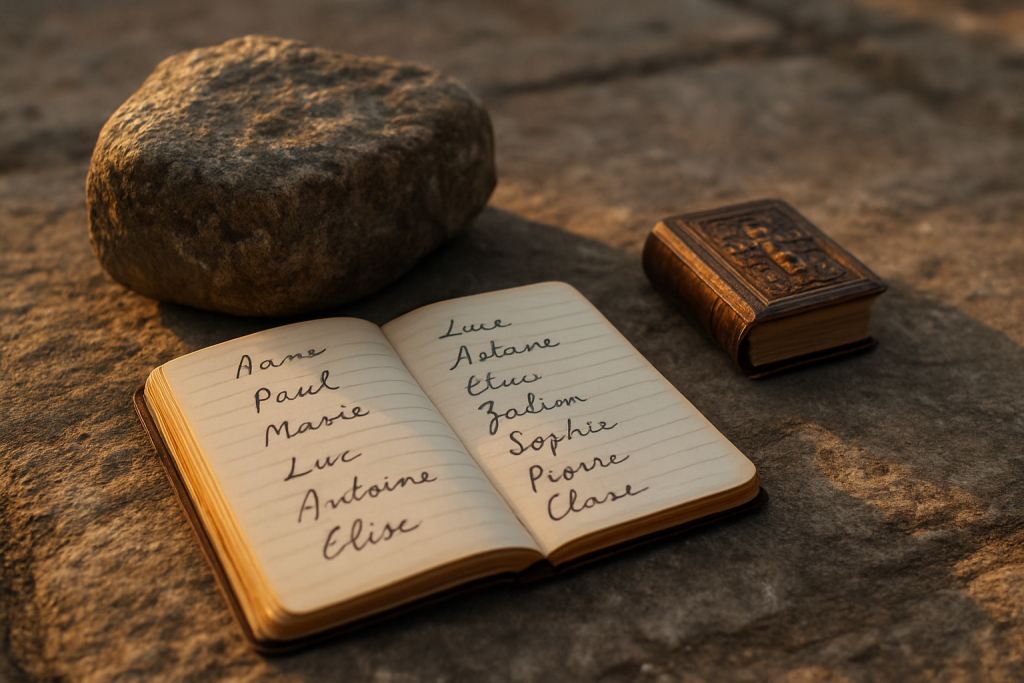 Aane
Paul
Marie
Luc
Antoine
Elise
Luce
Aetane
Etuc
Zadiom
Sophie
Piorre
Clase